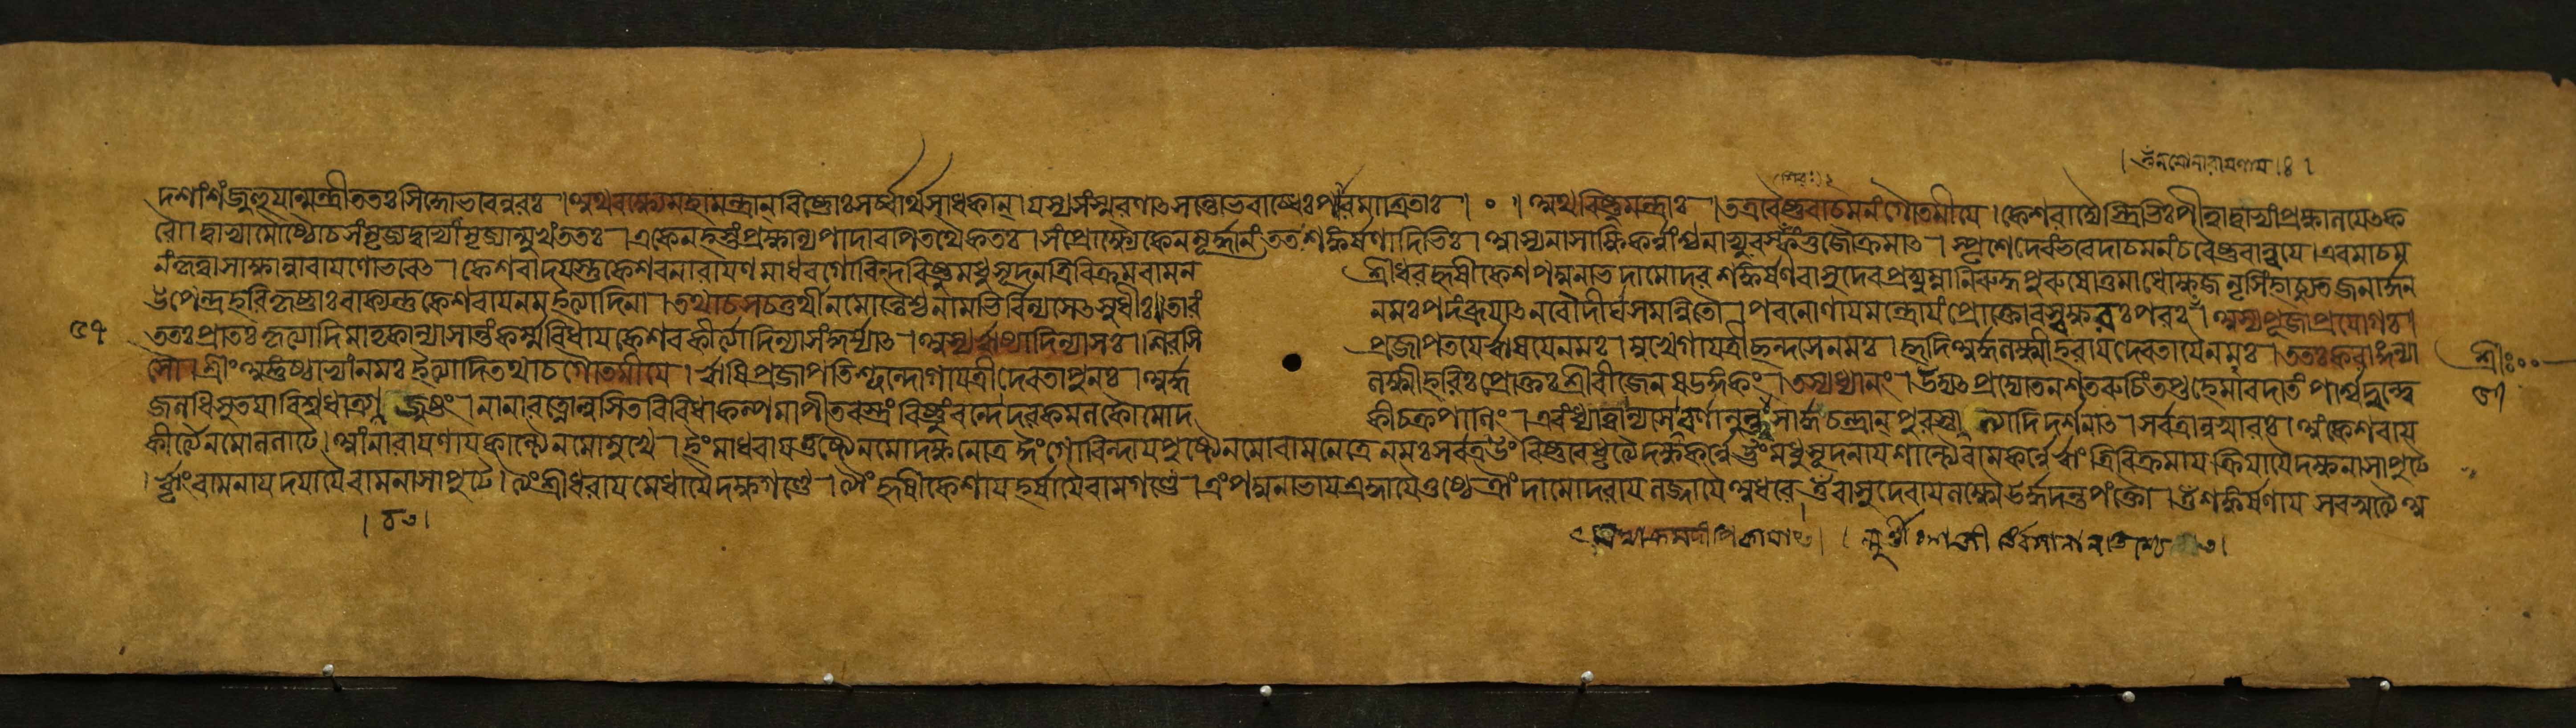 । ওঁ নমো নারায়ণায় ।৪।
দশাংশং জুহুয়ান্মন্ত্রী ততঃ সিদ্ধো ভবেন্নরঃ । অথ বক্ষ্যে মহামন্ত্রান্ বিষ্ণোঃ সর্ব্বার্থসাধকান্ । যস্য সংস্মরণাৎ সন্তো ভবাব্ধেঃ পারমাশ্রিতাঃ । ० । অথ বিষ্ণুমন্ত্রাঃ । তত্র বৈষ্ণবাচমনং গৌতমীয়ে । কেশবাদ্যৈস্ত্রিভিঃ পীত্বা দ্বাভ্যাং প্রক্ষালয়েৎ ক
রৌ । দ্বাভ্যামোষ্ঠৌ চ সংমৃজ্য দ্বাভ্যাং মৃজ্যান্মুখং ততঃ । একেন হস্তং প্রক্ষাল্য পাদাবপি তথৈকতঃ । সংপ্রোক্ষ্যৈকেন মূর্দ্ধানং ততঃ শঙ্কর্ষণাদিভিঃ । আস্যনাসাক্ষিকর্ণাংশ্চ নাভ্যুরস্কং ভুজৌ ক্রমাৎ । স্পৃশেদেবং ভবেদাচমনং চ বৈষ্ণবান্বয়ে । এবমাচম
নং কৃত্বা সাক্ষান্নারায়ণো ভবেৎ । কেশবাদয়স্তু কেশবনারায়ণমাধবগোবিন্দবিষ্ণুমধুসূদনত্রিবিক্রমবামন শ্রীধরহৃষীকেশপদ্মনাভদামোদরশঙ্কর্ষণবাসুদেবপ্রদ্যুম্নানিরুদ্ধপুরুষোত্তমাধোক্ষজনৃসিংহাচ্যুতজনার্দ্দন
উপেন্দ্রহরিকৃষ্ণাঃ বাক্যন্তু কেশবায় নম ইত্যাদিনা । তথা চ সচতুর্থীনমোন্তৈশ্চ নামভির্বিন্যসেৎ সুধীঃ । তারং নমঃপদং ব্রূয়াৎ নরৌ দীর্ঘসমন্বিতৌ । পবনো ণায় মন্ত্রোয়ং প্রোক্তো বস্বক্ষরঃ পরঃ । অস্য পূজাপ্রয়োগঃ ।
ততঃ প্রাতঃকৃত্যাদিমাতৃকান্যাসান্তং কর্ম্ম বিধায় কেশবকীর্ত্যাদিন্যাসং কুর্য্যাৎ । অস্য ঋষ্যাদিন্যাসঃ । শিরসি প্রজাপতয়ে ঋষয়ে নমঃ । মুখে গায়ত্রীচ্ছন্দসে নমঃ । হৃদি অর্দ্ধলক্ষ্মীহরায় দেবতায়ৈ নমঃ । ততঃ করাঙ্গন্যা
সৌ । শ্রীং অঙ্গুষ্ঠাভ্যাং নমঃ ইত্যাদি তথা চ গৌতমীয়ে । ঋষিঃ প্রজাপতিশ্ছন্দো গায়ত্রী দেবতা পুনঃ । অর্দ্ধ লক্ষ্মীহরিঃ প্রোক্তঃ শ্রীবীজেন ষড়ঙ্গকং । অস্য ধ্যানং । উদ্যৎপ্রদ্যোতনশতরুচিং তপ্তহেমাবদাতং পার্শ্বদ্বন্দ্বে
জলধিসুতয়া বিশ্বধাত্র্যা চ জুষ্টং । নানারত্নোল্লসিতবিবিধাকল্পমাপীতবস্ত্রং বিষ্ণুং বন্দে দরকমলকৌমোদ কীচক্রপাণিং । এবং ধ্যাত্বা ন্যাসে বর্ণানুক্ত্বা সার্দ্ধচন্দ্রান্ পুরস্ত্যাদিদর্শনাৎ । সর্বত্রান্বয়ারঃ । অং কেশবায়
কীর্ত্যৈ নমো ললাটে । আং নারায়ণায় কান্ত্যৈ নমো মুখে । ইং মাধবায় তুষ্ট্যৈ নমো দক্ষনেত্রে ঈং গোবিন্দায় পুষ্ট্যৈ নমো বামনেত্রে নমঃ সর্বত্র উং বিষ্ণবে ধৃত্যৈ দক্ষকর্ণে ঊং মধুসূদনায় শান্ত্যৈ বামকর্ণে ঋং ত্রিবিক্রমায় ক্রিয়ায়ৈ দক্ষনাসাপুটে
। ঋৃং বামনায় দয়ায়ৈ বামনাসাপুটে । ঌং শ্রীধরায় মেধায়ৈ দক্ষগণ্ডে । ৡং হৃষীকেশায় হর্ষায়ৈ বামগণ্ডে । এং পদ্মনাভায় শ্রদ্ধায়ৈ ওষ্ঠে ঐং দামোদরায় লজ্জায়ৈ অধরে ওঁ বাসুদেবায় লক্ষ্ম্যৈ ঊর্দ্ধদন্তপংক্তৌ । ঔং শঙ্কর্ষণায় সরস্বত্যৈ অ
শ্রীঃ